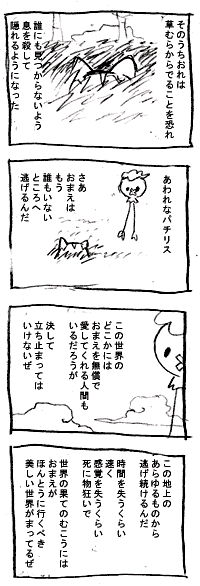 そのうちおれは
草むらからでることを恐れ
誰にも見つからないよう
息を殺して
隠れるようになった
あわれなパチリス
さあ
おまえは
もう
誰もいない
ところへ
逃げるんだ
この世界の
どこかには
おまえを無償で
愛してくれる人間も
いるだろうが
決して
立ち止まっては
いけないぜ
この地上の
あらゆるものから
逃げ続けるんだ
時間を失うくらい
速く
感覚を失うくらい
死に物狂いで
世界の果てのむこうには
おまえが
ほんとうに行くべき
美しい世界がまってるぜ